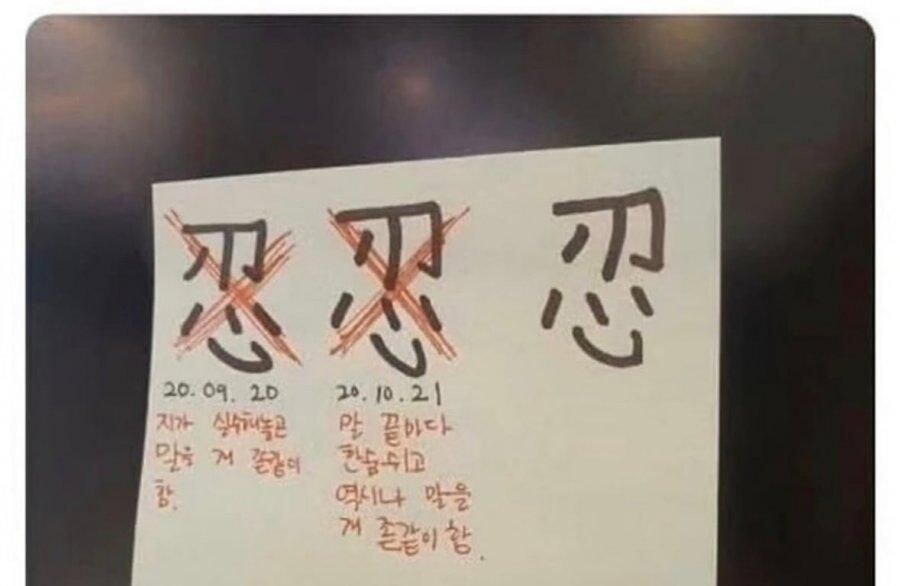 忍 忍 忍
20.09.20
지가 실수해놓곤
말을 게 졸같이
함.
20.10.21
말 끝마다
한숨쉬고
역시나 말을
게 졸같이 함.